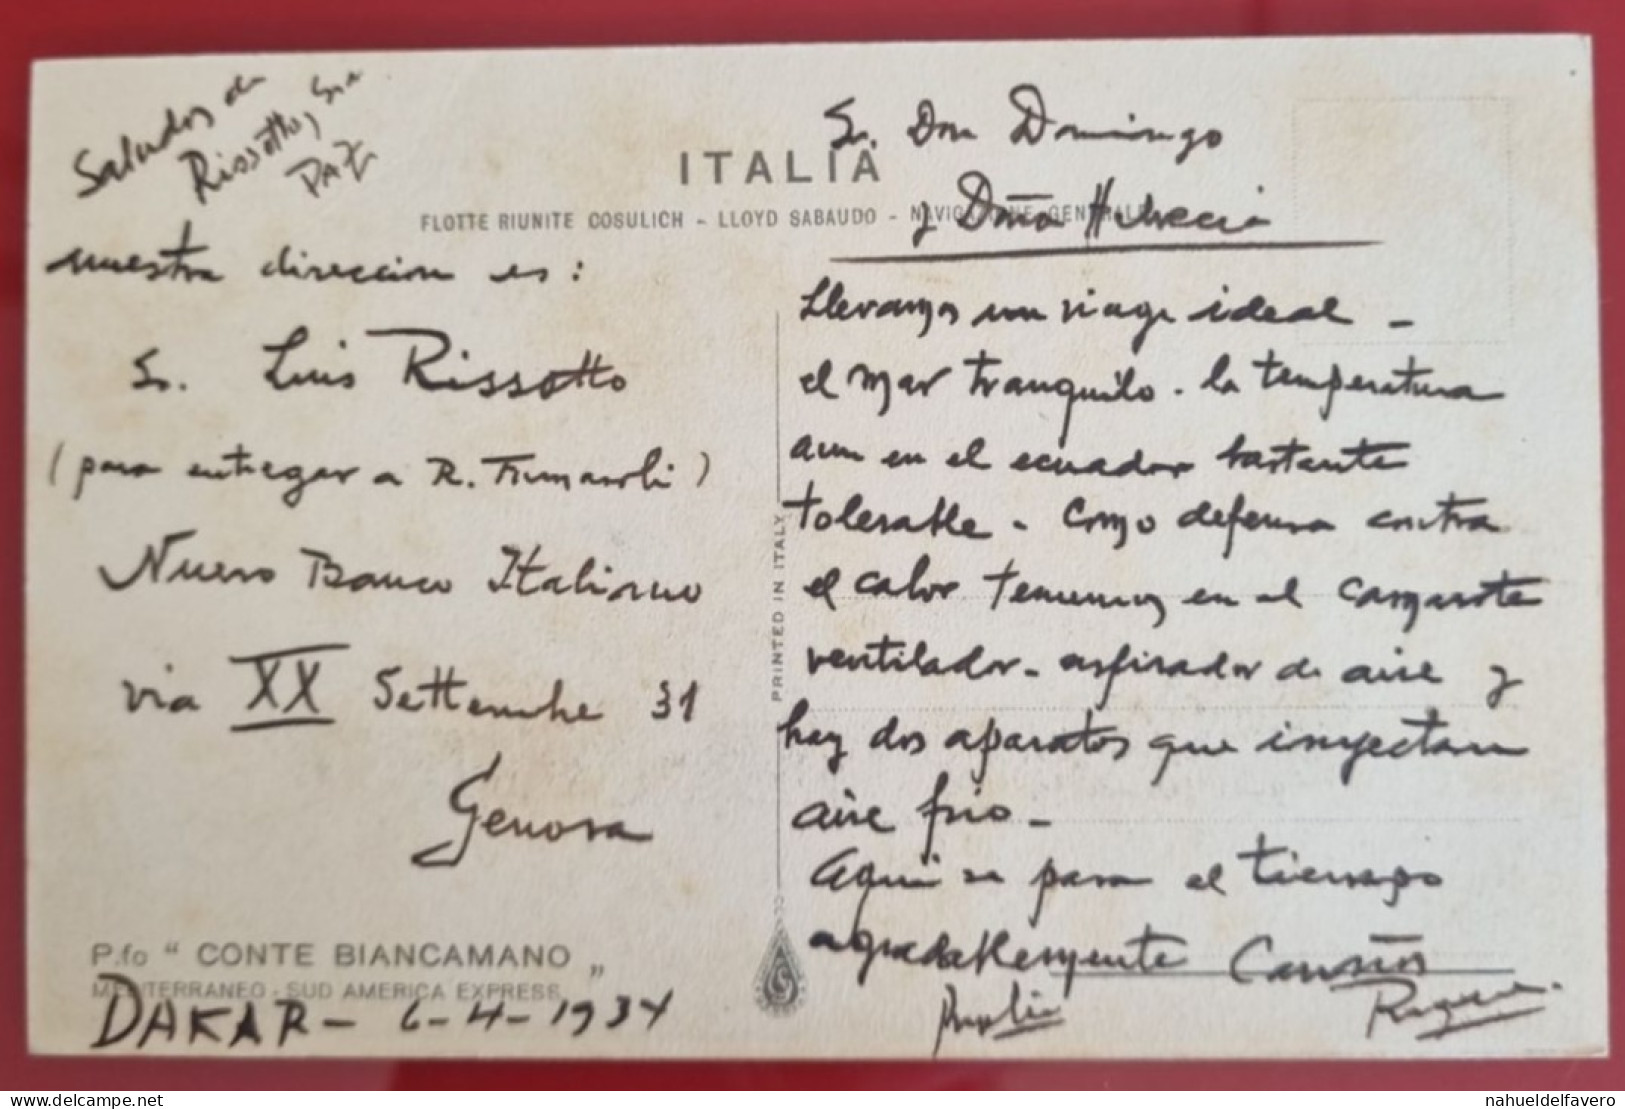 Saludos de
Rissotto, Sra
PAZ
ITALIA
FLOTTE RIUNITE COSULICH - LLOYD SABAUDO - NAVIGAZIONE GENERALE
nuestra direccion es:
Sr. Luis Rissotto
(para entregar a R. )
Nuevo Banco Italiano
via XX Settembre 31
Genova
P.fo " CONTE BIANCAMANO "
MEDITERRANEO - SUD AMERICA EXPRESS
DAKAR - 6-4-1934
PRINTED IN ITALY
Sr. Don Domingo
y Doña Helvecia
Llevamos un viage ideal -
el mar tranquilo. la temperatura
aun en el ecuador bastante
tolerable - Como defensa contra
el calor tenemos en el camarote
ventilador - aspirador de aire y
hay dos aparatos que inyectan
aire frio -
Aqui se pasa el tiempo
agradablemente Cariños
nahueldelfavero